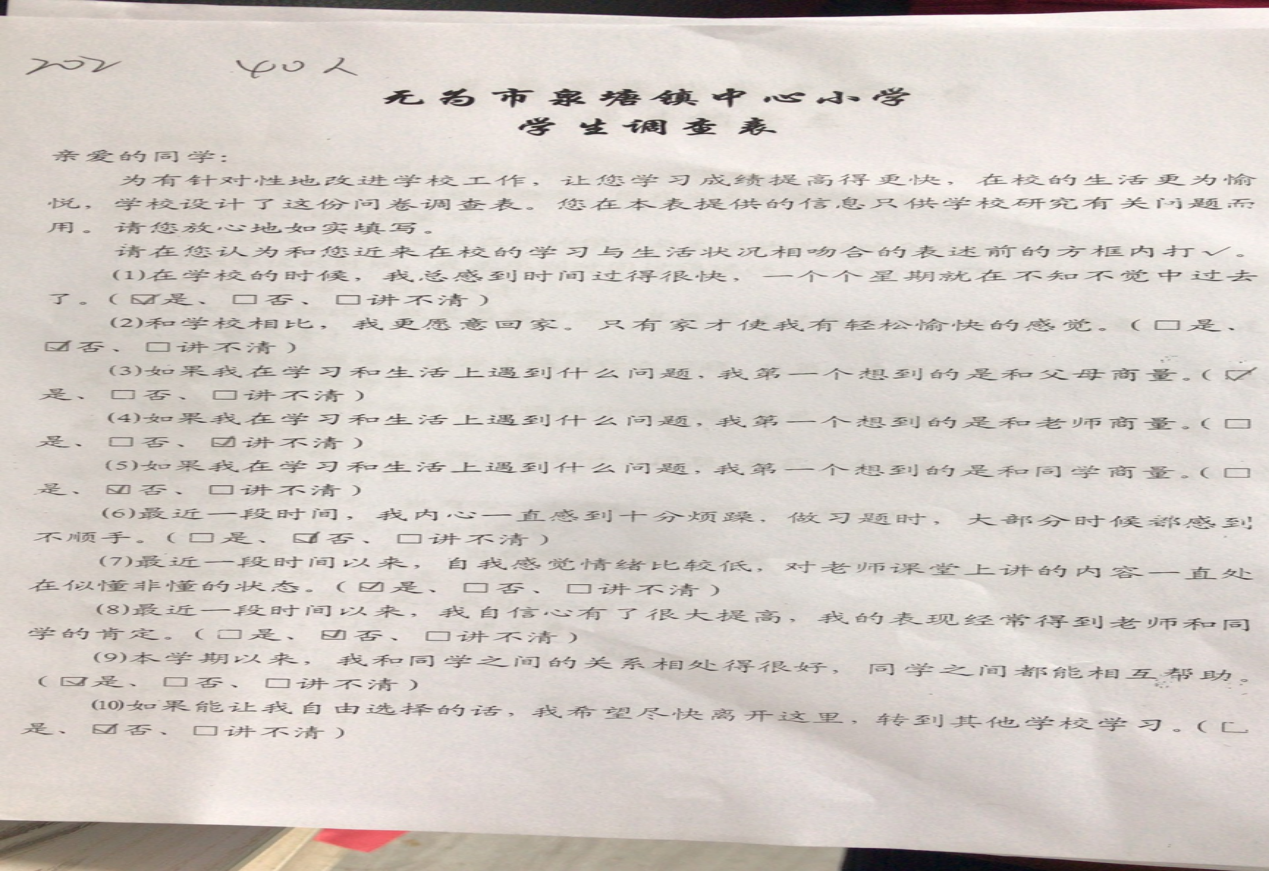 202 40人
无为市泉塘镇中心小学
学生调查表
亲爱的同学：
为有针对性地改进学校工作，让您学习成绩提高得更快，在校的生活更为愉
悦，学校设计了这份问卷调查表。您在本表提供的信息只供学校研究有关问题而
用。请您放心地如实填写。
请在您认为和您近来在校的学习与生活状况相吻合的表述前的方框内打✓。
(1)在学校的时候，我总感到时间过得很快，一个个星期就在不知不觉中过去
了。（☑是、□否、□讲不清）
(2)和学校相比，我更愿意回家。只有家才使我有轻松愉快的感觉。（□是、
☑否、□讲不清）
(3)如果我在学习和生活上遇到什么问题，我第一个想到的是和父母商量。（☑
是、□否、□讲不清）
(4)如果我在学习和生活上遇到什么问题，我第一个想到的是和老师商量。（□
是、□否、☑讲不清）
(5)如果我在学习和生活上遇到什么问题，我第一个想到的是和同学商量。（□
是、☑否、□讲不清）
(6)最近一段时间，我内心一直感到十分烦躁，做习题时，大部分时候都感到
不顺手。（□是、☑否、□讲不清）
(7)最近一段时间以来，自我感觉情绪比较低，对老师课堂上讲的内容一直处
在似懂非懂的状态。（☑是、□否、□讲不清）
(8)最近一段时间以来，我自信心有了很大提高，我的表现经常得到老师和同
学的肯定。（□是、☑否、□讲不清）
(9)本学期以来，我和同学之间的关系相处得很好，同学之间都能相互帮助。
（☑是、□否、□讲不清）
(10)如果能让我自由选择的话，我希望尽快离开这里，转到其他学校学习。（□
是、☑否、□讲不清）